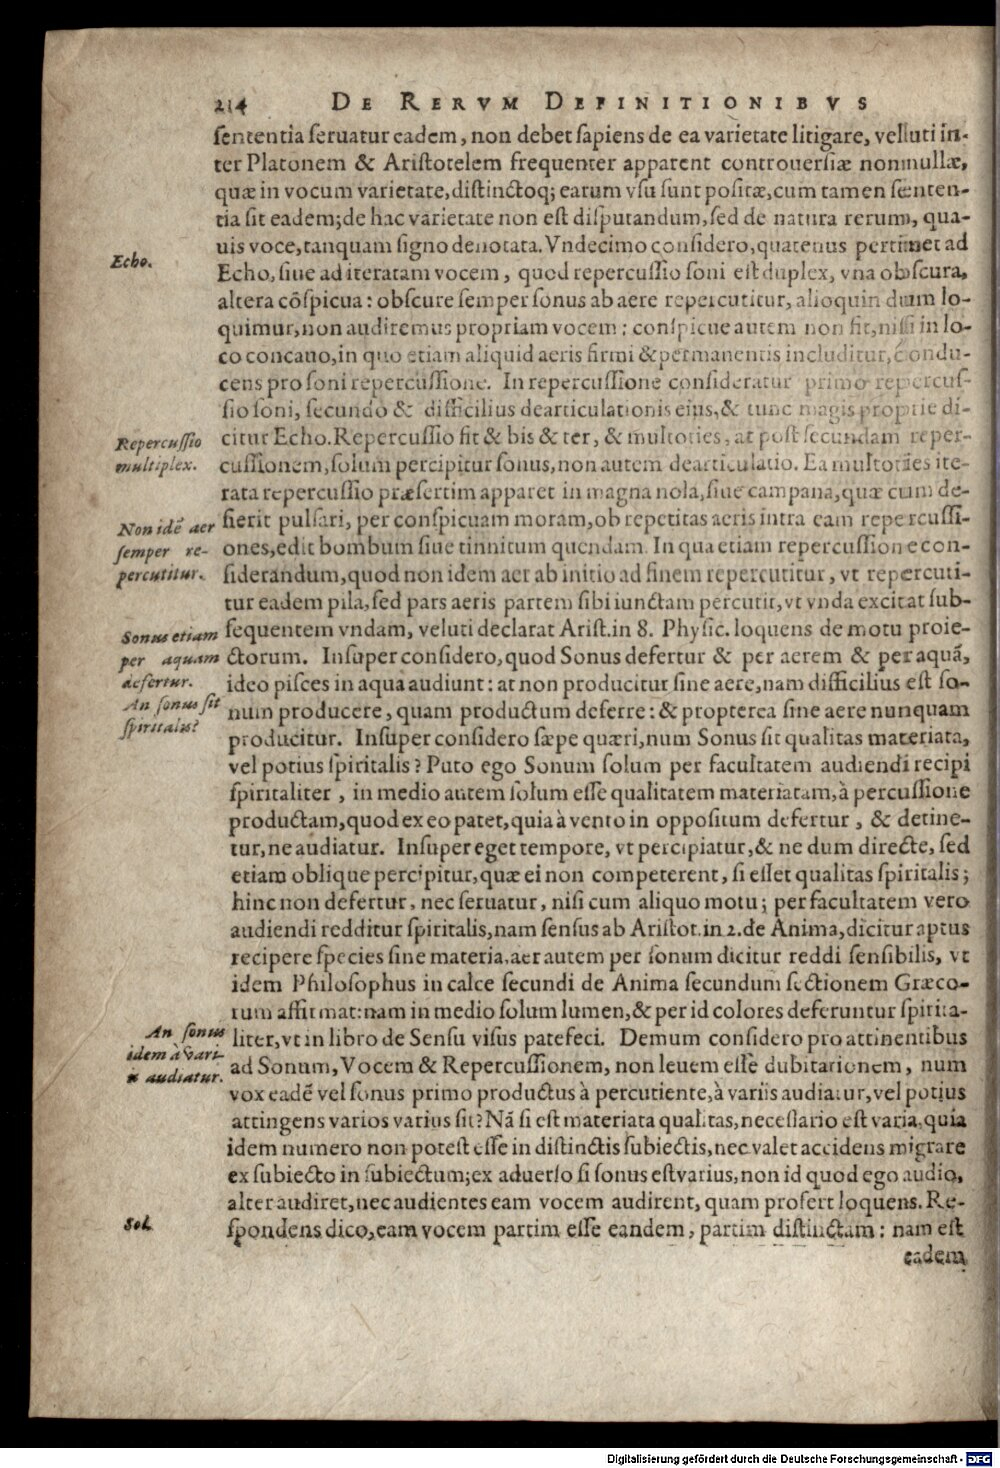 214 DE RERVM DEFINITIONIBVS
ſententia ſeruatur eadem, non debet ſapiens de ea varietate litigare, velluti in-
ter Platonem & Ariſtotelem frequenter apparent controuerſiæ nonnullæ,
quæ in vocum varietate, diſtinctoq; earum vſu ſunt poſitæ, cum tamen ſenten-
tia ſit eadem; de hac varietate non eſt diſputandum, ſed de natura rerum, qua-
uis voce, tanquam ſigno denotata. Vndecimo conſidero, quatenus pertinet ad
Echo.
Echo, ſiue ad iteratam vocem, quod repercuſſio ſoni eſt duplex, vna obſcura,
altera cõſpicua: obſcure ſemper ſonus ab aere repercutitur, alioquin dum lo-
quimur, non audiremus propriam vocem: conſpicue autem non fit, niſi in lo-
co concauo, in quo etiam aliquid aeris firmi & permanentis includitur, condu-
cens pro ſoni repercuſſione. In repercuſſione conſideratur primo repercuſ-
ſio ſoni, ſecundo & difficilius dearticulationis eius, & tunc magis proprie di-
Repercuſſio
multiplex.
citur Echo. Repercuſſio fit & bis & ter, & multoties, at poſt ſecundam reper-
cuſſionem, ſolum percipitur ſonus, non autem dearticulatio. Ea multoties ite-
rata repercuſſio præſertim apparet in magna nola, ſiue campana, quæ cum de-
Non idẽ aer
ſemper re-
percutitur.
ſierit pulſari, per conſpicuam moram, ob repetitas aeris intra eam repercuſſi-
ones, edit bombum ſiue tinnitum quendam. In qua etiam repercuſſione con-
ſiderandum, quod non idem aer ab initio ad finem repercutitur, vt repercuti-
tur eadem pila, ſed pars aeris partem ſibi iunctam percutit, vt vnda excitat ſub-
Sonus etiam
per aquam
defertur.
ſequentem vndam, veluti declarat Ariſt. in 8. Phyſic. loquens de motu proie-
ctorum. Inſuper conſidero, quod Sonus defertur & per aerem & per aquã,
ideo piſces in aqua audiunt: at non producitur ſine aere, nam difficilius eſt ſo-
An ſonus ſit
ſpiritalis?
num producere, quam productum deferre: & propterea ſine aere nunquam
producitur. Inſuper conſidero ſæpe quæri, num Sonus ſit qualitas materiata,
vel potius ſpiritalis? Puto ego Sonum ſolum per facultatem audiendi recipi
ſpiritaliter, in medio autem ſolum eſſe qualitatem materiatam, à percuſſione
productam, quod ex eo patet, quia à vento in oppoſitum defertur, & detine-
tur, ne audiatur. Inſuper eget tempore, vt percipiatur, & ne dum directe, ſed
etiam oblique percipitur, quæ ei non competerent, ſi eſſet qualitas ſpiritalis;
hinc non defertur, nec ſeruatur, niſi cum aliquo motu; per facultatem vero
audiendi redditur ſpiritalis, nam ſenſus ab Ariſtot. in 2. de Anima, dicitur aptus
recipere ſpecies ſine materia, aer autem per ſonum dicitur reddi ſenſibilis, vt
idem Philoſophus in calce ſecundi de Anima ſecundum ſectionem Græco-
rum affirmat: nam in medio ſolum lumen, & per id colores deferuntur ſpirita-
An ſonus
idem à vari-
is audiatur.
liter, vt in libro de Senſu viſus patefeci. Demum conſidero pro attinentibus
ad Sonum, Vocem & Repercuſſionem, non leuem eſſe dubitationem, num
vox eadẽ vel ſonus primo productus à percutiente, à variis audiatur, vel potius
attingens varios varius ſit? Nã ſi eſt materiata qualitas, neceſſario eſt varia, quia
idem numero non poteſt eſſe in diſtinctis ſubiectis, nec valet accidens migrare
ex ſubiecto in ſubiectum; ex aduerſo ſi ſonus eſt varius, non id quod ego audio,
alter audiret, nec audientes eam vocem audirent, quam profert loquens. Re-
Sol.
ſpondens dico, eam vocem partim eſſe eandem, partim diſtinctam: nam eſt
eadem
Digitalisierung gefördert durch die Deutsche Forschungsgemeinschaft - DFG